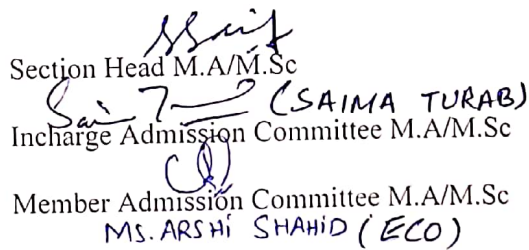 Section Head M.A/M.Sc
(SAIMA TURAB)
Incharge Admission Committee M.A/M.Sc
Member Admission Committee M.A/M.Sc
MS. ARSHI SHAHID (ECO)